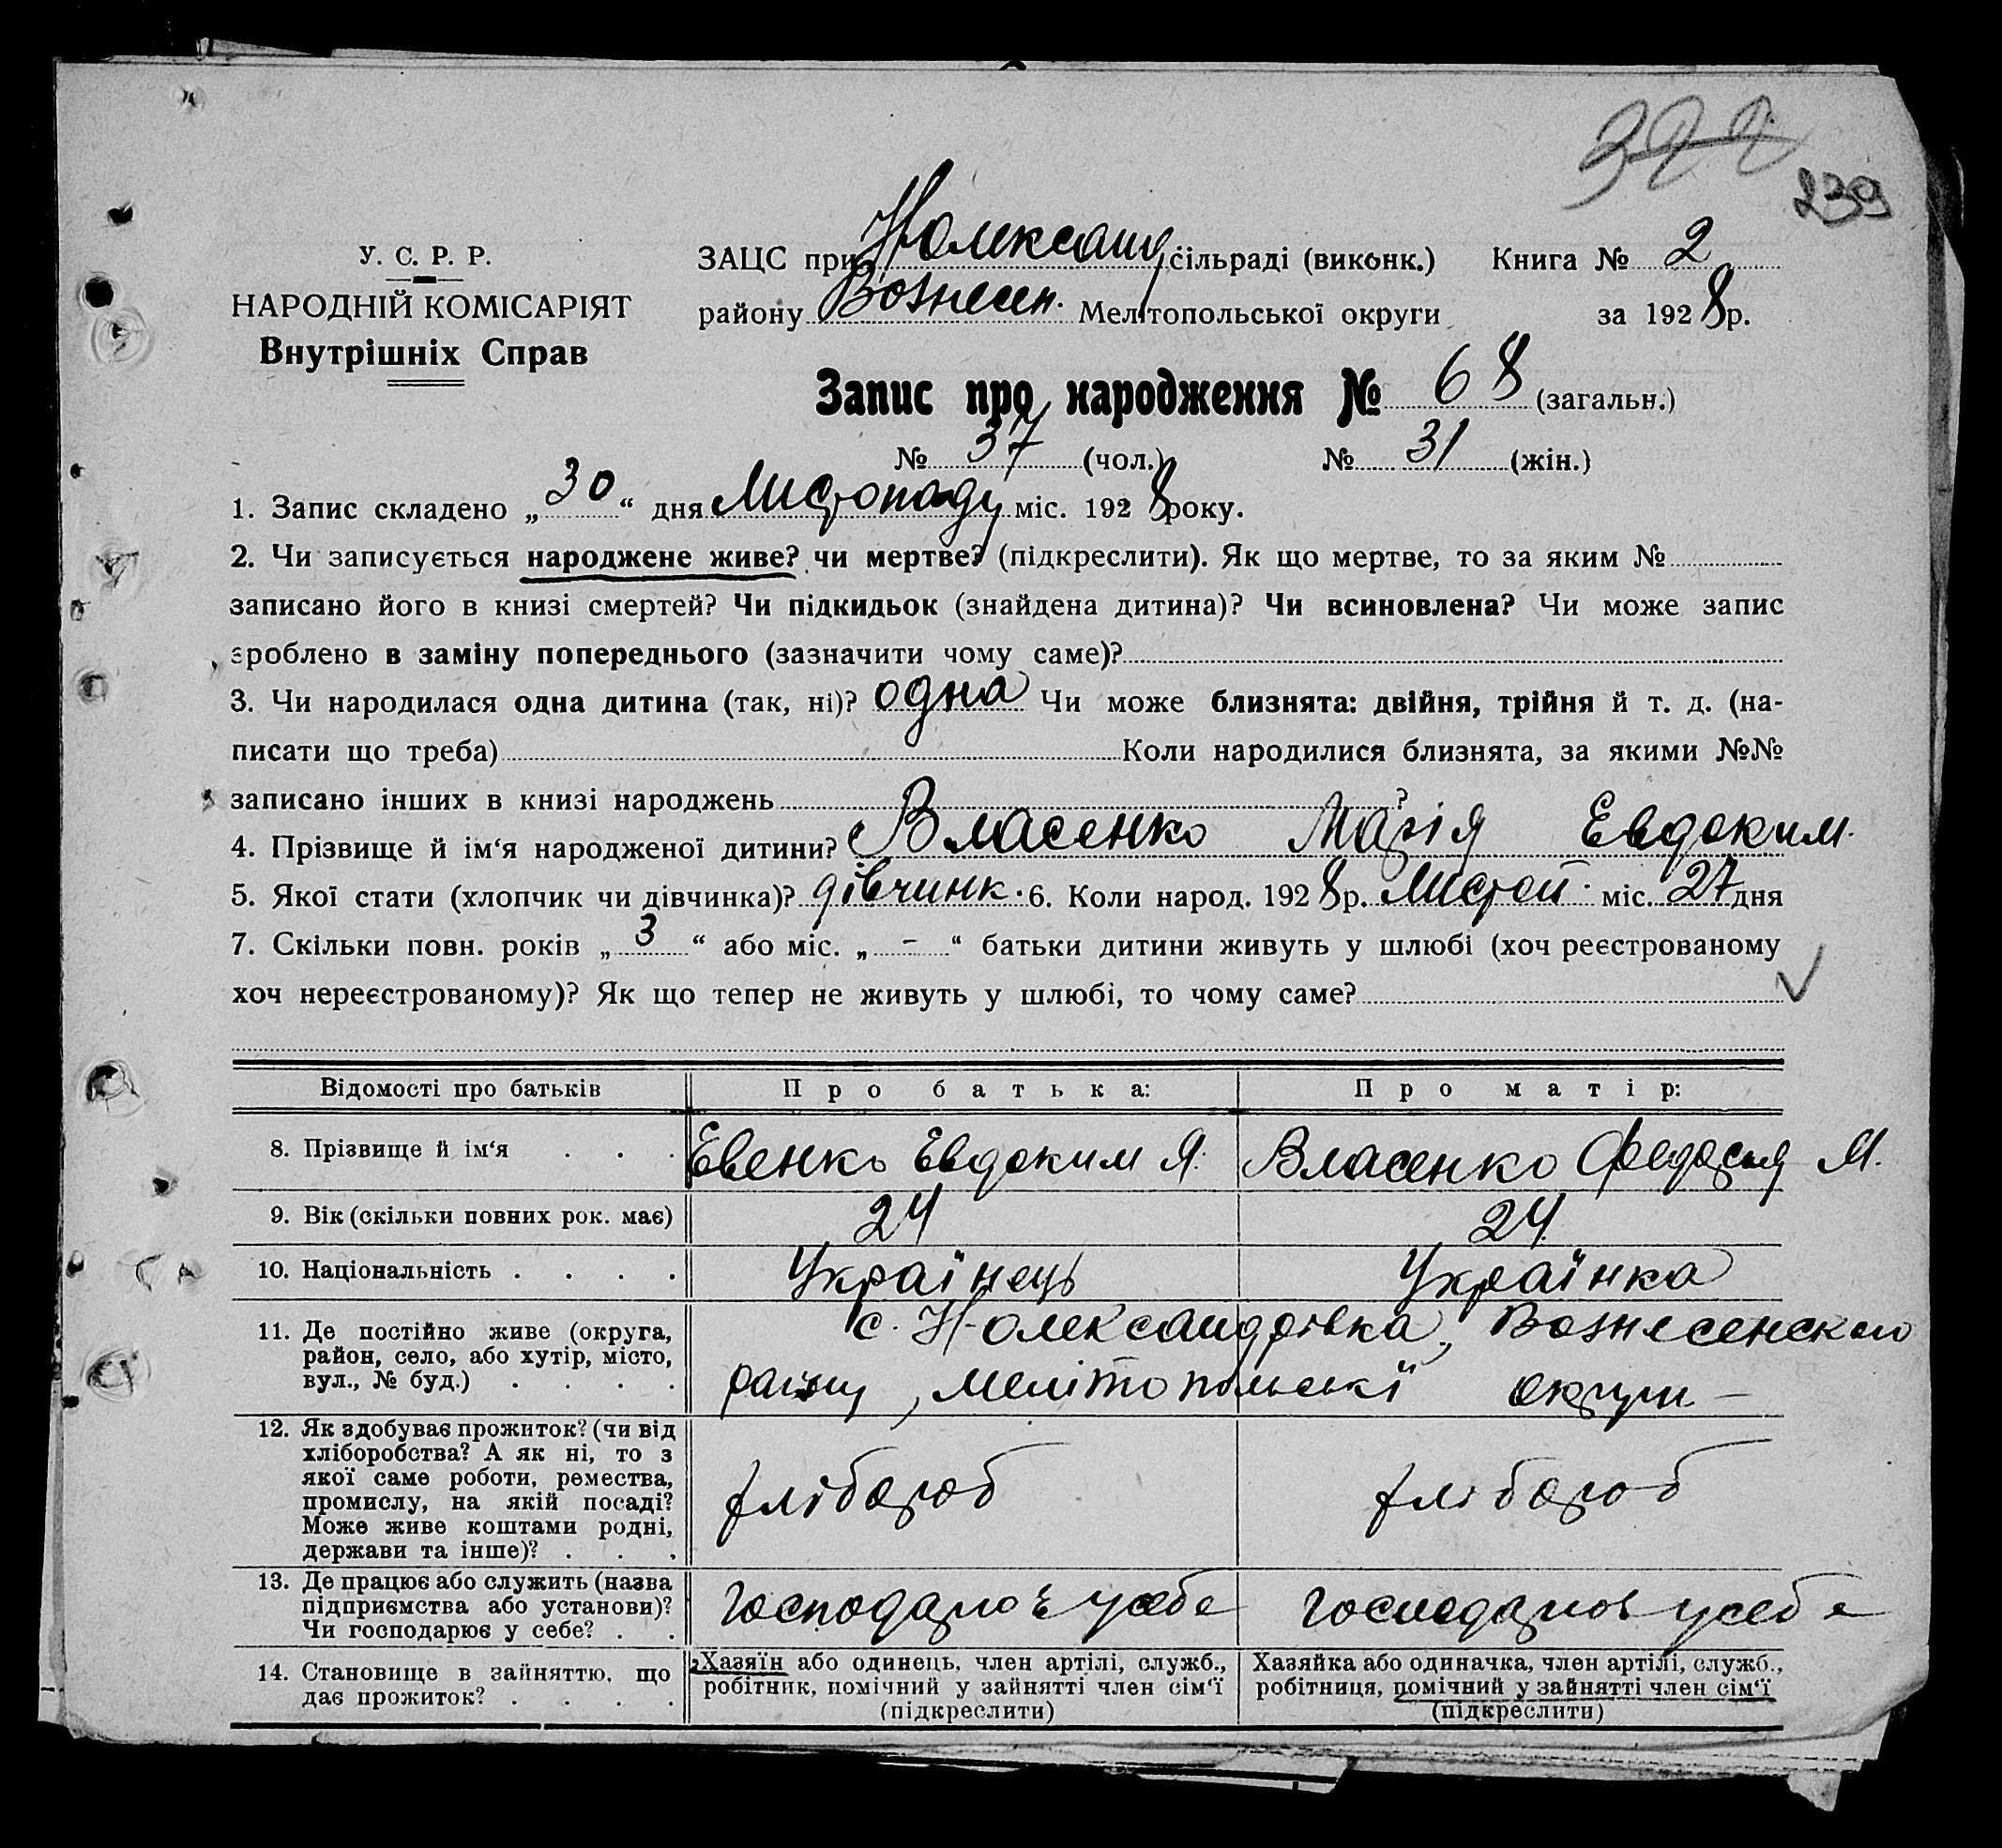 239
У. С. Р. Р.
НАРОДНІЙ КОМІСАРІЯТ
Внутрішніх Справ
ЗАЦС при Нолександ сільраді (виконк.) Книга № 2
району Вознесен. Мелітопольської округи за 1928 р.
Запис про народження № 68 (загальн.)
№ 37 (чол.) № 31 (жін.)
1. Запис складено „30“ дня Листопаду міс. 1928 року.
2. Чи записується народжене живе? чи мертве? (підкреслити). Як що мертве, то за яким №
записано його в книзі смертей? Чи підкидьок (знайдена дитина)? Чи всиновлена? Чи може запис
зроблено в заміну попереднього (зазначити чому саме)?
3. Чи народилася одна дитина (так, ні)? одна Чи може близнята: двійня, трійня й т. д. (на-
писати що треба) Коли народилися близнята, за якими №№
записано інших в книзі народжень ?
4. Прізвище й ім‘я народженої дитини? Власенко Марія Евдоким.
5. Якої стати (хлопчик чи дівчинка)? дівчинк. 6. Коли народ. 1928 р. Листоп. міс. 27 дня
7. Скільки повн. років „3“ або міс. „-“ батьки дитини живуть у шлюбі (хоч реєстрованому
хоч нереєстрованому)? Як що тепер не живуть у шлюбі, то чому саме?
Відомості про батьків Про батька: Про матір:
8. Прізвище й ім‘я . . . Евенко Евдоким Я. Власенко Федосья М.
9. Вік (скільки повних рок. має) 24 24
10. Національність . . . . Українець Українка
11. Де постійно живе (округа, район, село, або хутір, місто, вул., № буд.) . . . . с. Н-олександрівка, Вознесенского
району, Мелітопольскї округи –
12. Як здобуває прожиток? (чи від хліборобства? А як ні, то з якої саме роботи, ремества, промислу, на якій посаді? Може живе коштами родні, держави та інше)? . . . хлібороб хлібороб
13. Де працює або служить (назва підприємства або установи)? Чи господарює у себе? . . господарює у себе господарює у себе
14. Становище в зайняттю, що дає прожиток? . . . . Хазяїн або одинець, член артілі, служб., робітник, помічний у зайнятті член сім‘ї (підкреслити) Хазяйка або одиначка, член артілі, служб., робітниця, помічний у зайнятті член сім‘ї (підкреслити)